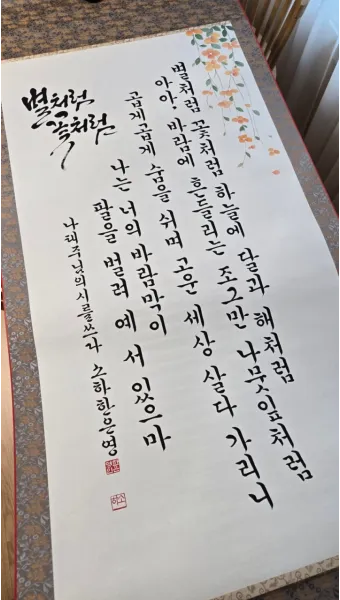 별처럼
꽃처럼
별처럼 꽃처럼 하늘에 달과 해처럼
아아 바람에 흔들리는 조그만 나뭇잎처럼
곱게곱게 숨을 쉬며 고운 세상 살다 가리니
나는 너의 바람막이
팔을 벌려 예 서 있으마
나태주님의 시를 쓰다 소하 한은영